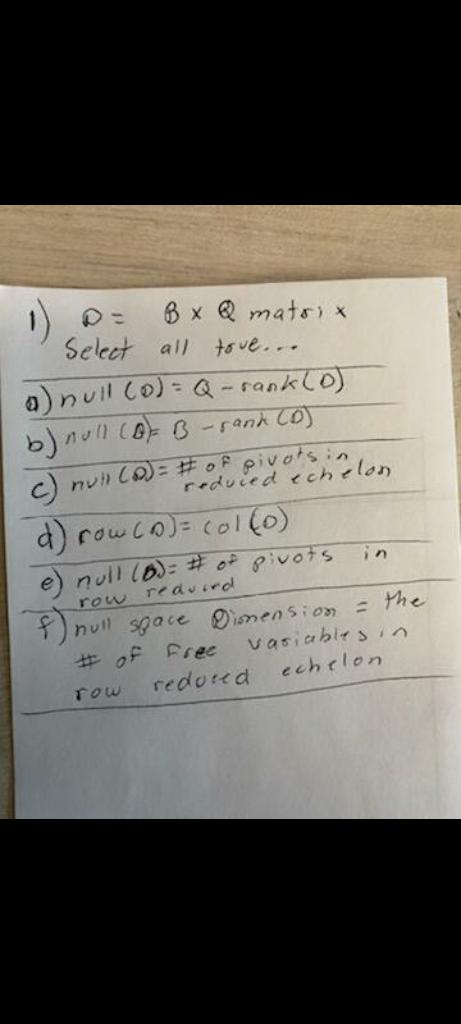 1) D = B x Q matrix
Select all true...
a) null (D) = Q - rank(D)
b) null (D) = B - rank (D)
c) null (D) = # of pivots in
reduced echelon
d) row (D) = col (D)
e) null (D) = # of pivots in
row reduced
f) null space Dimension = the
# of free variables in
row reduced echelon